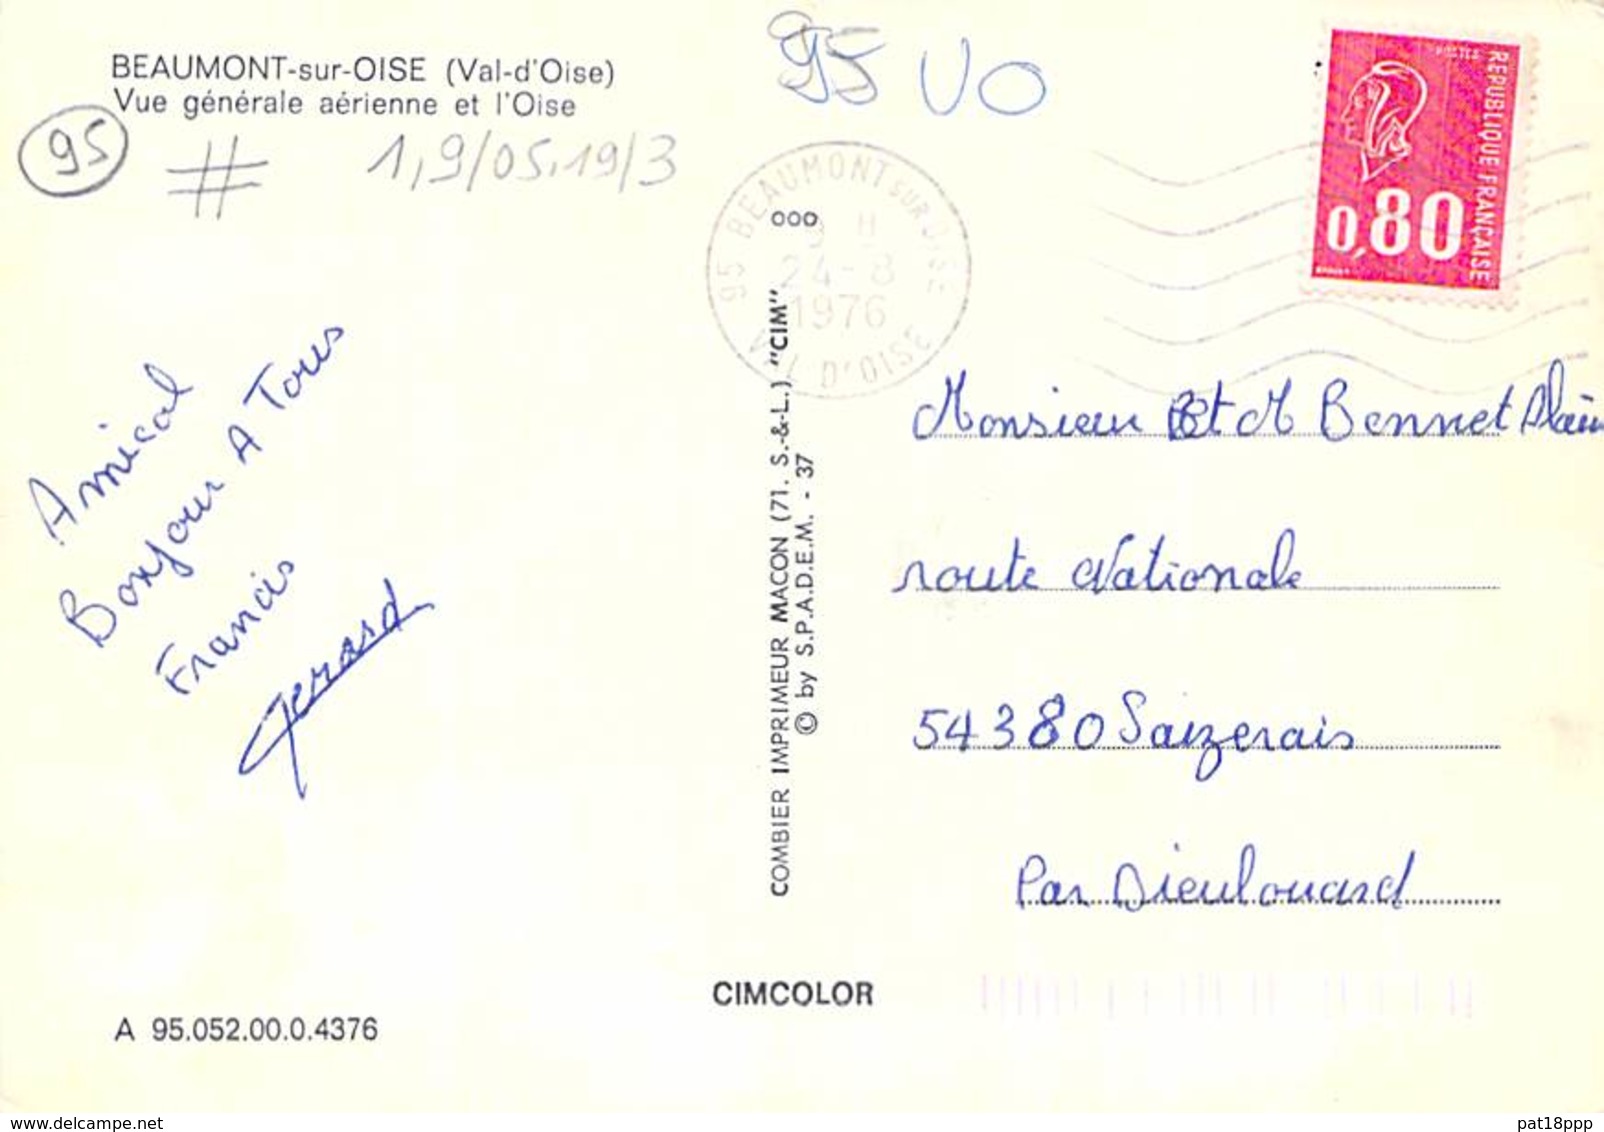 BEAUMONT-sur-OISE (Val-d'Oise)
Vue générale aérienne et l'Oise
95
#
1,9/05.19/3
95 VO
95 BEAUMONT SUR OISE
24-8
1976
VAL D'OISE
REPUBLIQUE FRANÇAISE
0,80
ooo
Amical
Bonjour A Tous
Francis
Gerard
COMBIER IMPRIMEUR MACON (71. S.-&-L.) "CIM"
© by S.P.A.D.E.M. - 37
Monsieur Et M Bennet Alain
route Nationale
54380 Saizerais
Par Dieulouard
CIMCOLOR
A 95.052.00.0.4376
pat18ppp